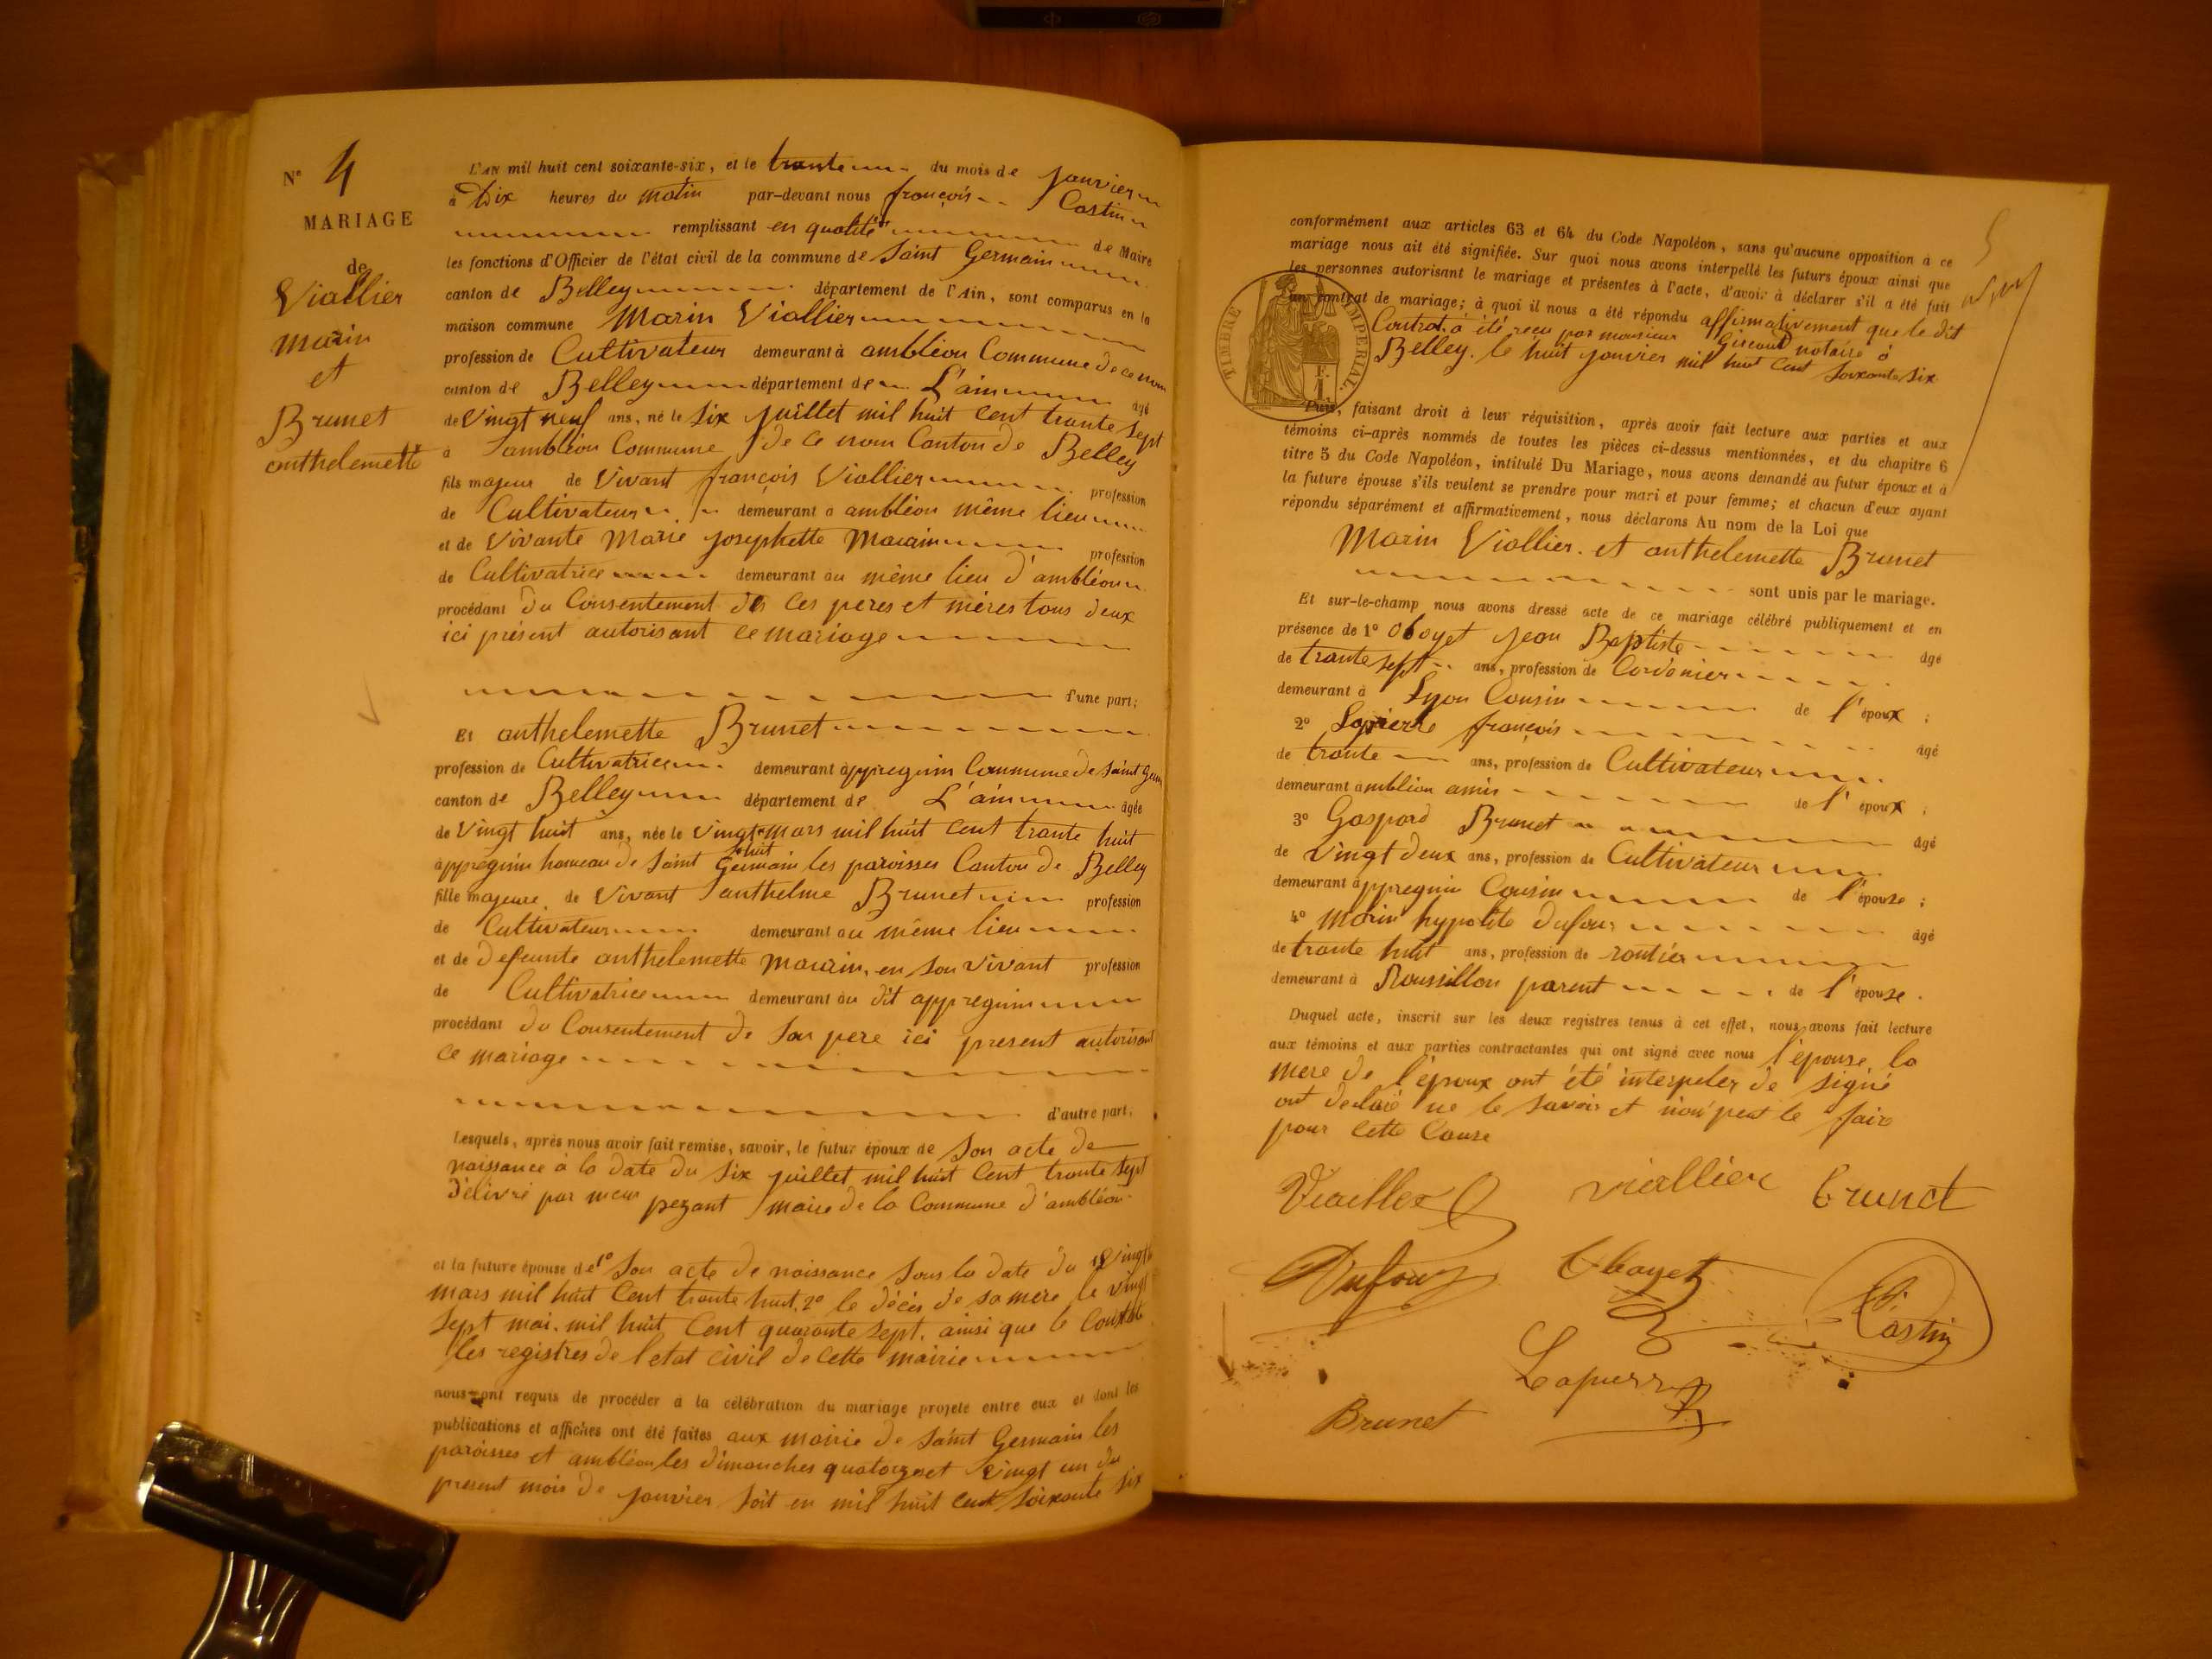 N° 4
MARIAGE
de
Viallier
Marin
et
Brunet
anthelemette
L'AN mil huit cent soixante-six, et le trante du mois de Janvier
à Dix heures du matin par-devant nous françois Castin
remplissant en qualité de Maire
les fonctions d'Officier de l'état civil de la commune de Saint Germain
canton de Belley département de l'Ain, sont comparus en la
maison commune Marin Viallier
profession de Cultivateur demeurant à ambléon Commune de ce nom
canton de Belley département de L'ain agé
de Vingt neuf ans, né le Six juillet mil huit cent trante sept
à ambléon Commune de ce nom Canton de Belley
fils majeur de Vivant françois Viallier profession
de Cultivateur demeurant à ambléon même lieu
et de Vivante Marie josephette Marin profession
de Cultivatrice demeurant au même lieu d'ambléon
procédant du Consentement des ces peres et mères tous deux
ici présent autorisant ce mariage
d'une part;
Et anthelemette Brunet
profession de Cultivatrice demeurant à appregnin Commune de Saint Germ
canton de Belley département de L'ain âgée
de Vingt huit ans, née le Vingt mars mil huit cent trante huit
à appregnin hameau de Saint Germain les paroisses Canton de Belley
fille majeure de Vivant anthelme Brunet profession
de Cultivateur demeurant au même lieu
et de defeunte anthelemette Marin, en son vivant profession
de Cultivatrice demeurant au dit appregnin
procédant du Consentement de Son pere ici present autorisant
ce mariage
d'autre part;
Lesquels, après nous avoir fait remise, savoir, le futur époux de Son acte de
naissance à la date du Six juillet mil huit Cent trante sept
Délivré par pezant maire de la Commune d'ambléon
et la future épouse de 1° Son acte de naissance Sous la date du Vingt
mars mil huit Cent trante huit, 2° le décès de sa mere le Vingt
Sept mai mil huit Cent quarante sept, ainsi que le Constate
les registres de l'etat civil de cette mairie
nous ont requis de procéder à la célébration du mariage projeté entre eux et dont les
publications et affiches ont été faites aux mairie de Saint Germain les
paroisses et ambléon les dimanches quatorze et Vingt un du
present mois de janvier Soit en mil huit cent Soixante six
conformément aux articles 63 et 64 du Code Napoléon, sans qu'aucune opposition à ce
mariage nous ait été signifiée. Sur quoi nous avons interpellé les futurs époux ainsi que
les personnes autorisant le mariage et présentes à l'acte, d'avoir à déclarer s'il a été fait
un contrat de mariage; à quoi il nous a été répondu affirmativement que le dit
Contrat à été reçu par monsieur Giraud notaire à
Belley le huit janvier mil huit Cent Soixante six
TIMBRE IMPERIAL.
Puis, faisant droit à leur réquisition, après avoir fait lecture aux parties et aux
témoins ci-après nommés de toutes les pièces ci-dessus mentionnées, et du chapitre 6
titre 5 du Code Napoléon, intitulé Du Mariage, nous avons demandé au futur époux et à
la future épouse s'ils veulent se prendre pour mari et pour femme; et chacun d'eux ayant
répondu séparément et affirmativement, nous déclarons Au nom de la Loi que
Marin Viallier et anthelemette Brunet
sont unis par le mariage.
Et sur-le-champ nous avons dressé acte de ce mariage célébré publiquement et en
présence de 1° Oboyet jean Baptiste âgé
de trante sept ans, profession de Cordonier
demeurant à Lyon Cousin de l'époux;
2° Lapierre françois âgé
de trante ans, profession de Cultivateur
demeurant ambléon amis de l'époux;
3° Gaspard Brunet âgé
de Vingt deux ans, profession de Cultivateur
demeurant appregnin Cousin de l'épouse;
4° Marin hypolite Dufour âgé
de trante huit ans, profession de rentier
demeurant à Roussillon parent de l'épouse.
Duquel acte, inscrit sur les deux registres tenus à cet effet, nous avons fait lecture
aux témoins et aux parties contractantes qui ont signé avec nous l'épouse, la
mere de l'époux ont été interpeler de signé
ont declaré ne le savoir et n'ont peut le faire
pour cette Cause
Viallier viallier brunet
Dufour Oboyet Castin
Lapierre
Brunet